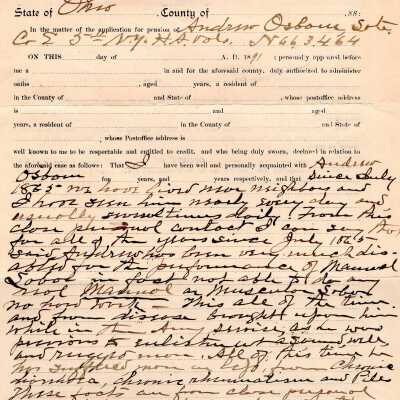 State of Ohio, County of , SS:
In the matter of the application for pension of Andrew Osborne, Late
Co I 5th N.Y. H.A. Vols. No 663,464
ON THIS day of A. D. 1891 personally appeared before
use a in and for the aforesaid county, duly authorized to administer
oaths , aged years, a resident of
in the County of and State of , whose postoffice address
is and aged
years, a resident of in the County of and State of
, whose Postoffice address is
well known to me to be respectable and entitled to credit, and who being duly sworn, declared in relation to
the aforesaid case as follows: That I have been well and personally acquainted with Andrew
Osborne for years, and years respectively, and that Since July
1865 we have lived near neighbors and
I have seen him nearly every day and
usually sometimes daily. From this
close personal contact I can say that
for all of the years since July 1865
said Andrew has been very much dis-
abled for the performance of Manual
Labor in fact not able to do
Manual or Muscular Labor
no hard work. This all of the time
and from disease brought upon him
while in the Army service, as he was
previous to enlistment a sound well
and rugged man. All of this time he
has suffered more or less from Chronic
diarrhoea, chronic rheumatism and Piles
These facts are from close personal